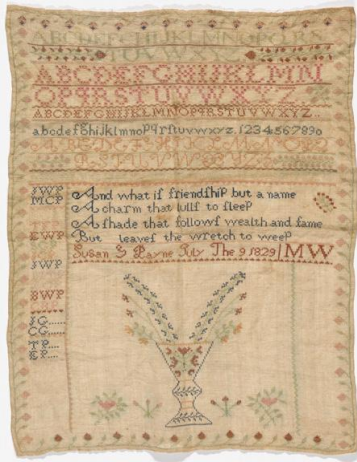 ABCDEFGHIJKLMNOPQRS
TUVWXYZ
ABCDEFGHIJKLMN
OPQRSTUVWXYZ
ABCDEFGHIJKLMNOPQRSTUVWXYZ
abcdefghijklmnopqrſtuvwxyz.1234567890
JWP
MCP
And what if friendſhip but a name
A charm that lullſ to ſleep
A ſhade that followſ wealth and fame
EWP
But leaveſ the wretch to weep
Susan S Payne July The 9 1829 MW
JWP
SWP
CG